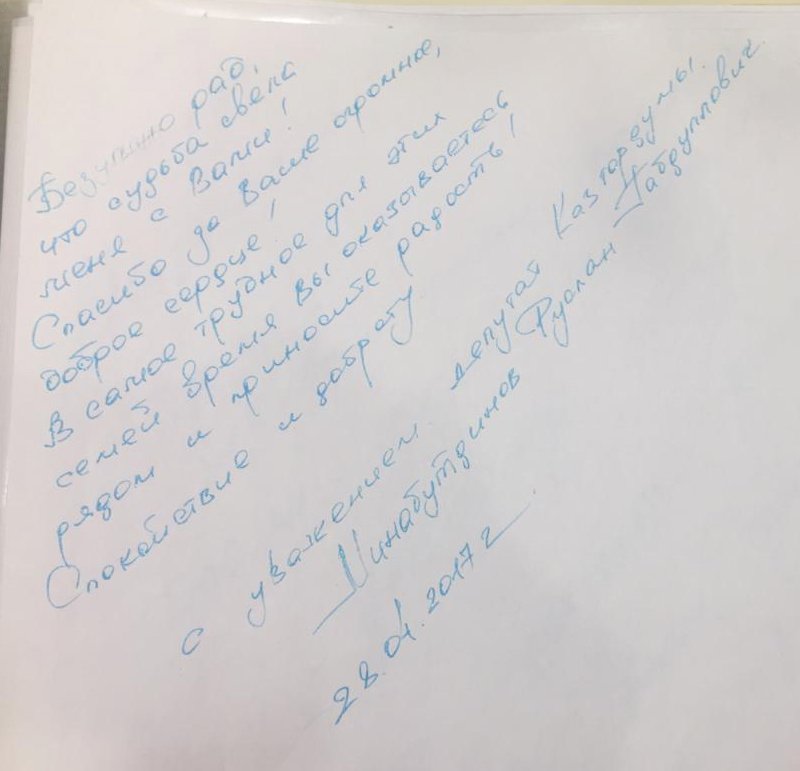 Безумно рад,
что судьба свела
меня с Вами!
Спасибо за Ваше огромное,
доброе сердце!
В самое трудное для этих
семей время Вы оказываетесь
рядом и приносите радость!
Спокойствие и доброту
с уважением депутат Казгордумы.
Минабутдинов Руслан Габдуллович
28.04.2017 г